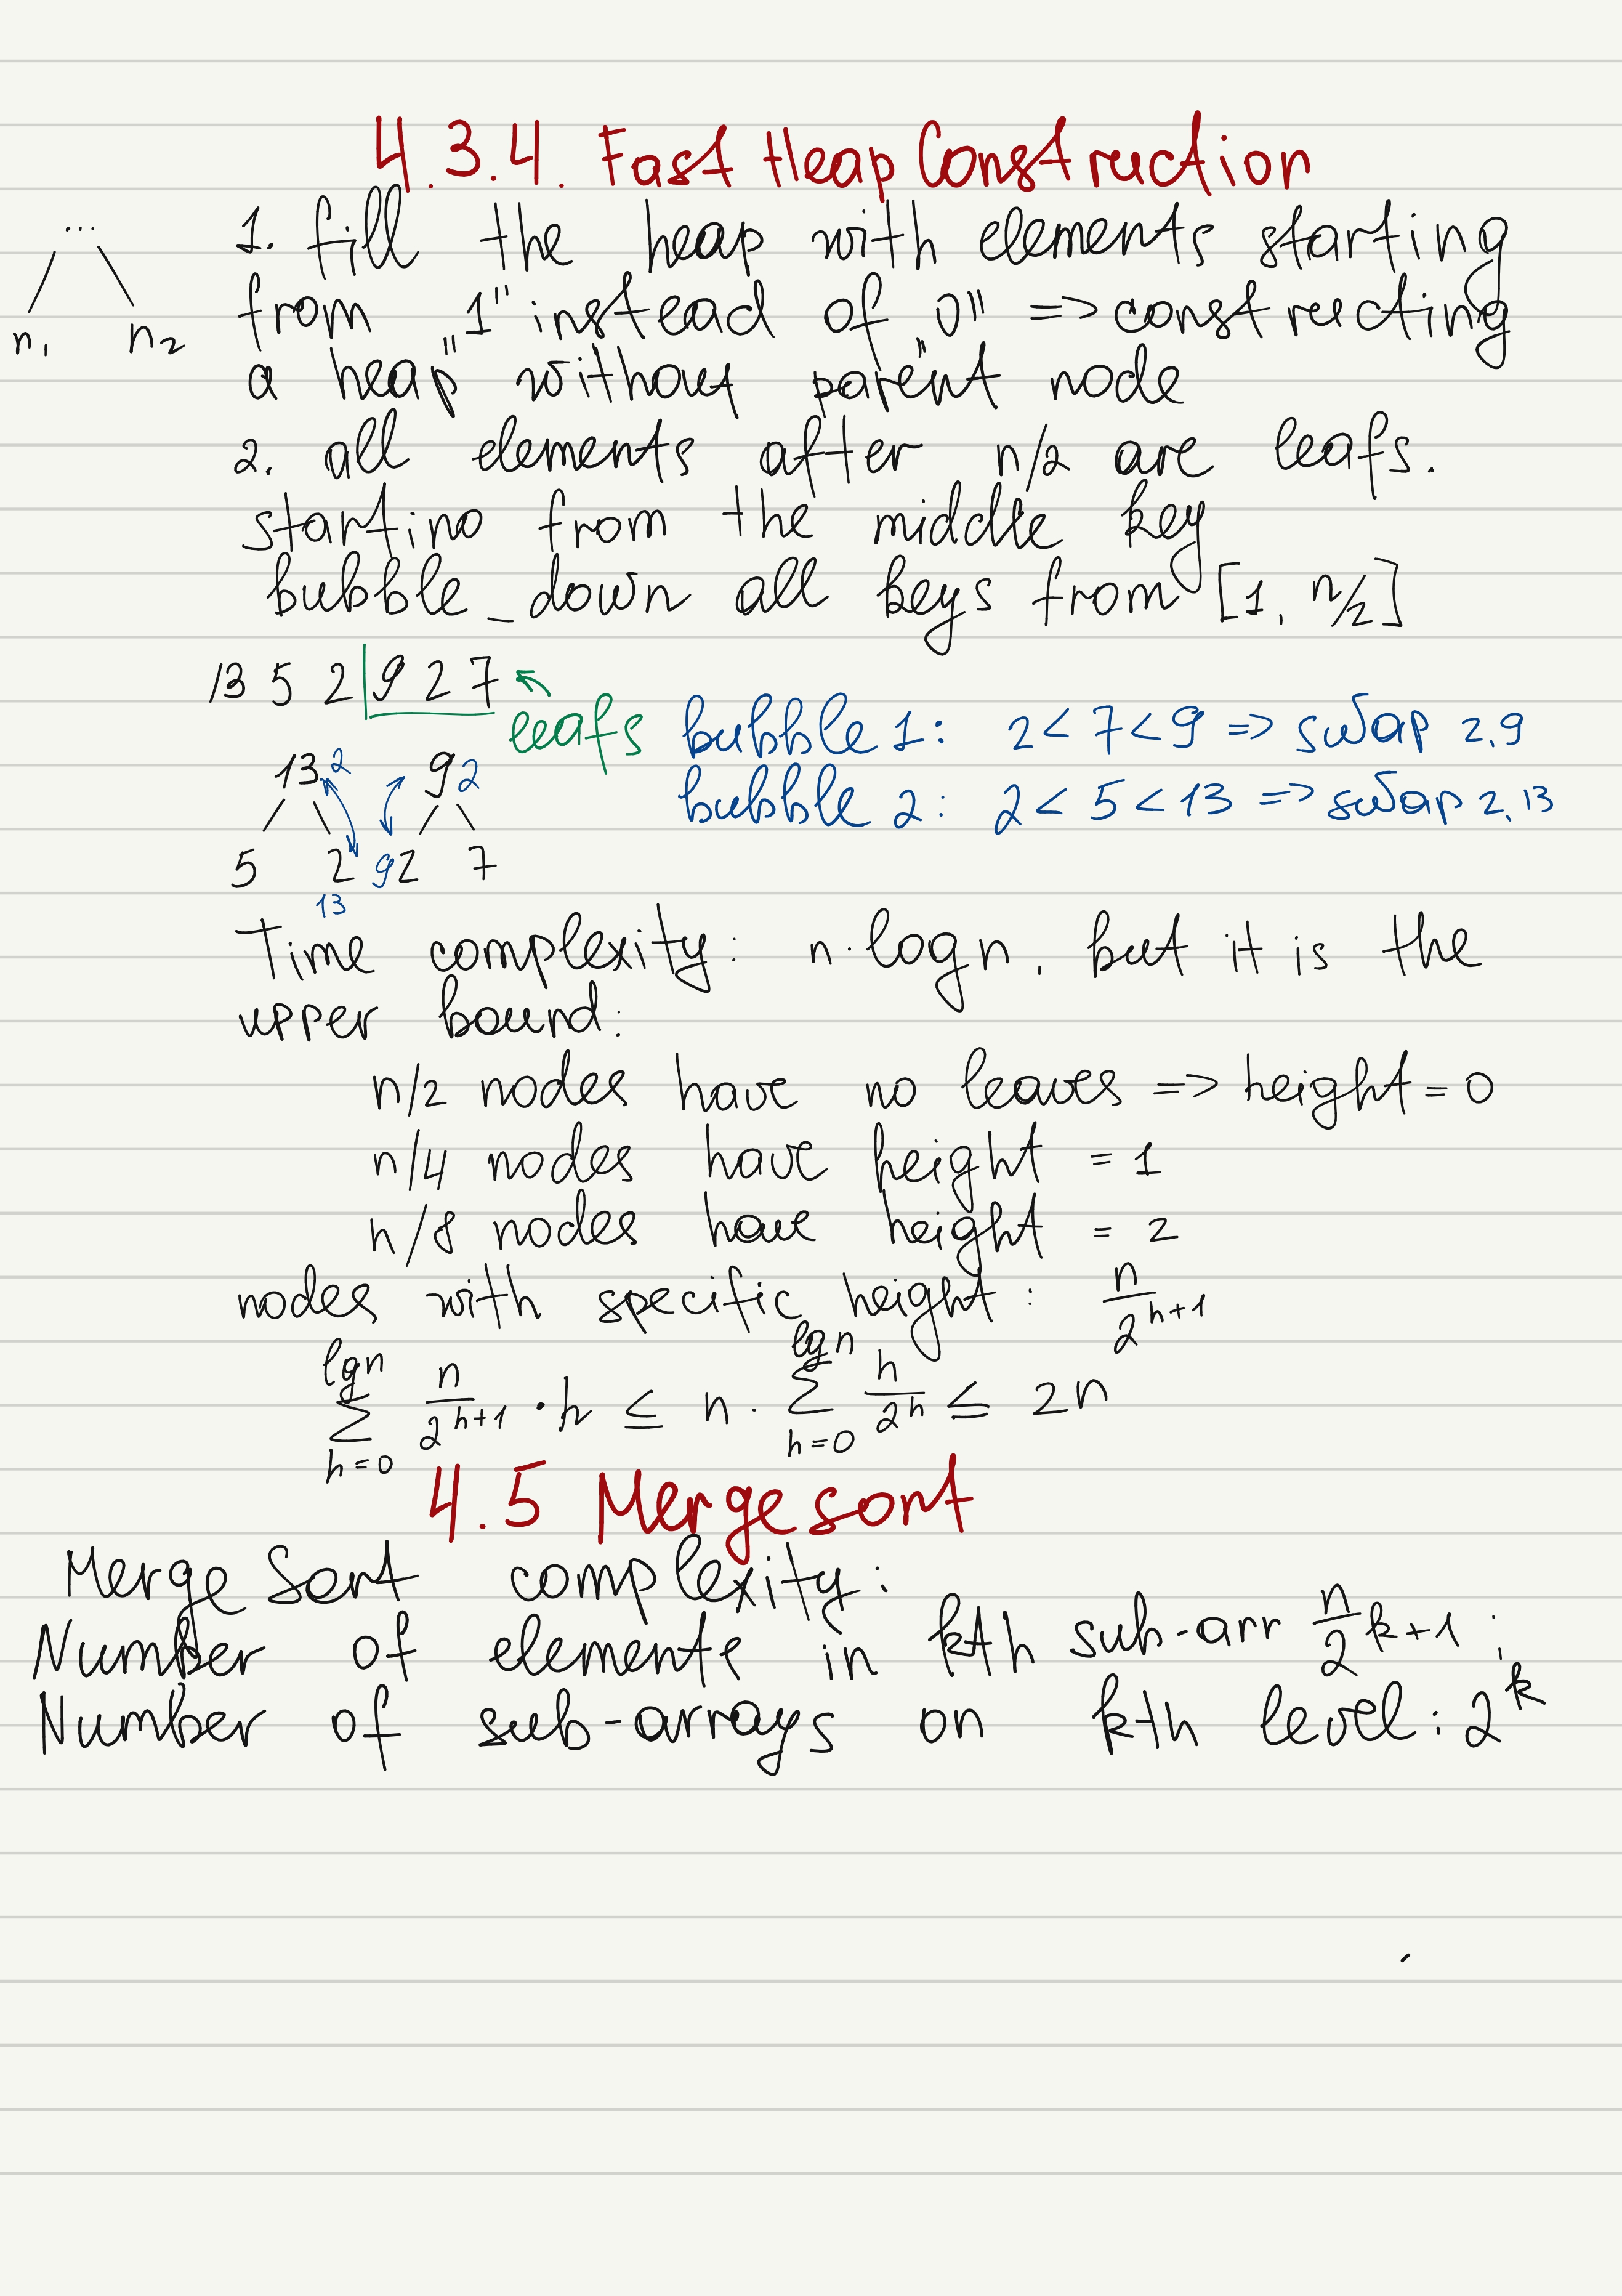 4.3.4. Fast Heap Construction
... 
n₁ n₂
1. fill the heap with elements starting
from "1" instead of "0" => constructing
a "heap without parent" node
2. all elements after n/2 are leafs.
startino from the middle key
bubble_down all keys from [1, n/2]
13 5 2 | 9 2 7
leafs
bubble 1: 2 < 7 < 9 => swap 2,9
bubble 2: 2 < 5 < 13 => swap 2,13
13 2 9 2
5 2 9 2 7
13
Time complexity: n · log n, but it is the
upper bound:
n/2 nodes have no leaves => height = 0
n/4 nodes have height = 1
n/8 nodes have height = 2
nodes with specific height: n/2^(h+1)
∑_{h=0}^{lg n} n/2^(h+1) · h ≤ n · ∑_{h=0}^{lg n} h/2^h ≤ 2n
4.5 Merge sort
Merge Sort complexity:
Number of elements in kth sub-arr n/2^(k+1);
Number of sub-arrays on kth level: 2^k